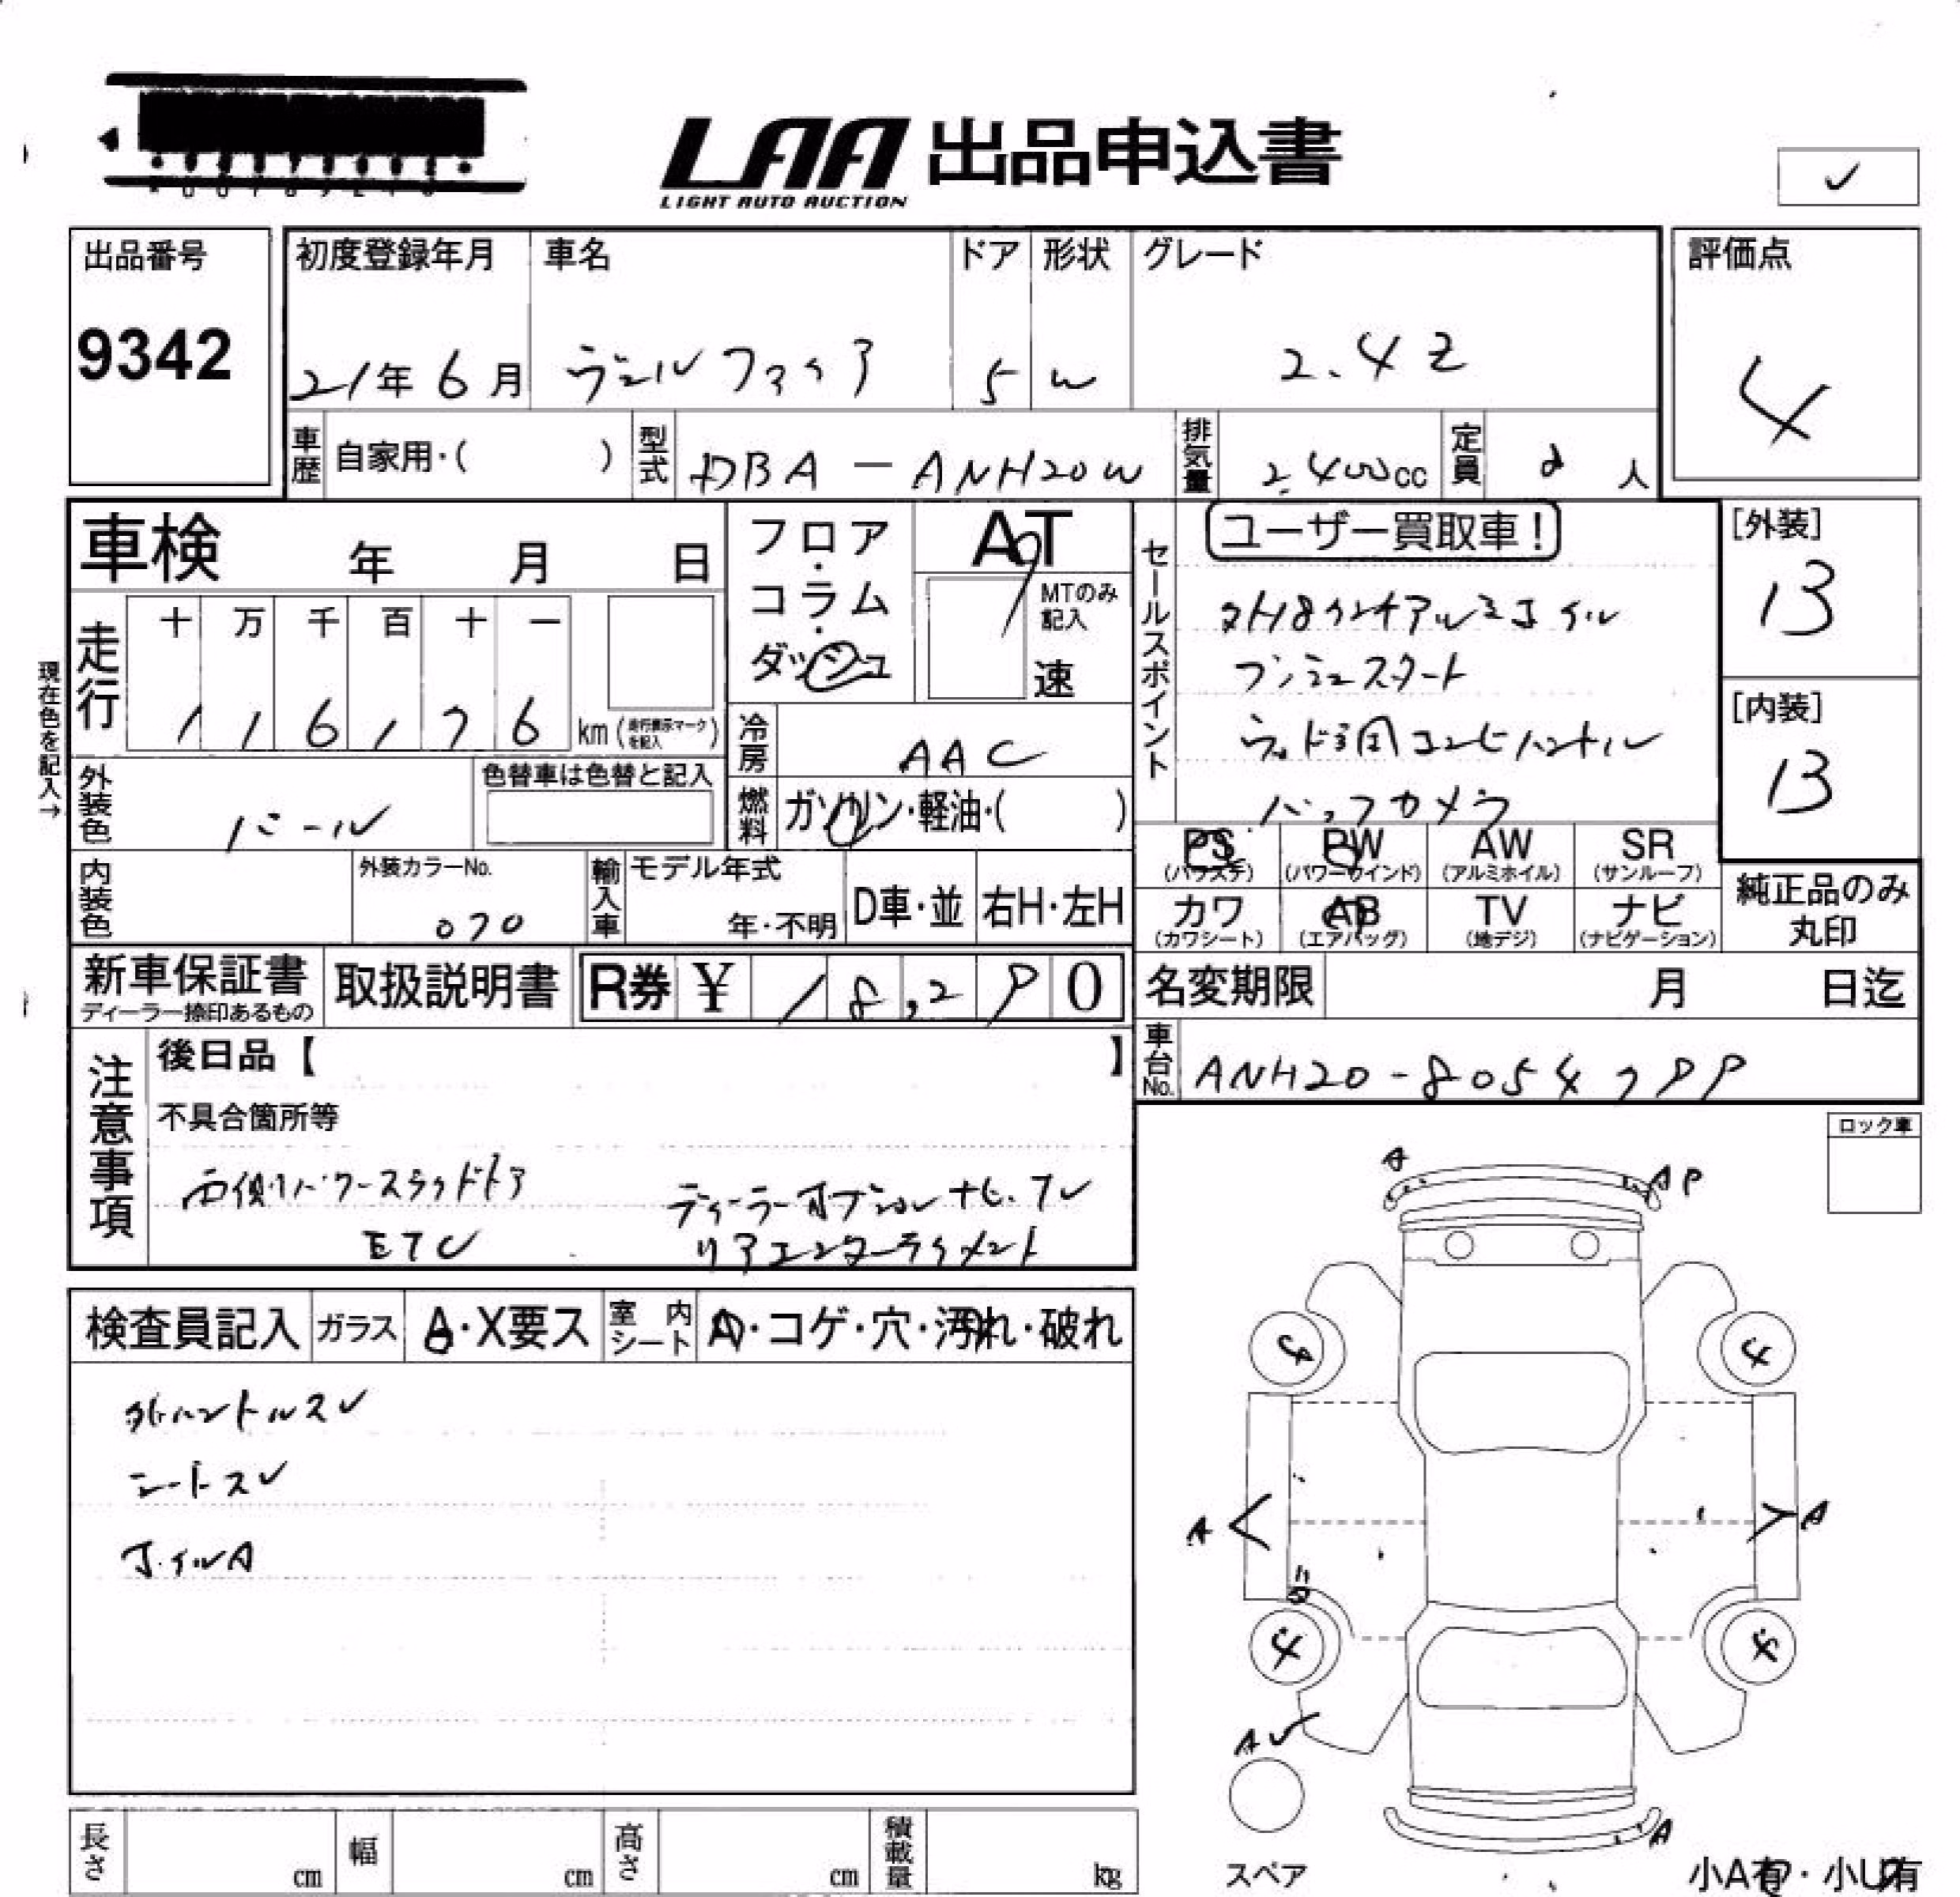 LAA 出品申込書
LIGHT AUTO AUCTION
✓
出品番号
9342
初度登録年月
21年6月
車名
ヴェルファイア
ドア
5
形状
W
グレード
2.4Z
評価点
4
車歴 自家用・( )
型式 DBA-ANH20W
排気量 2,400cc
定員 人
車検 年 月 日
フロア・コラム・ダッシュ
AT
MTのみ記入
速
走行
十 万 千 百 十 一
1 1 6 1 7 6 km (走行表示マークを記入)
現在色を記入→
冷房 AAC
外装色 パール
色替車は色替と記入
燃料 ガソリン・軽油・( )
内装色
外装カラーNo.
070
輸入車 モデル年式
年・不明
D車・並
右H・左H
セールスポイント
ユーザー買取車!
プッシュスタート
ウッド調コンビハンドル
バックカメラ
[外装]
13
[内装]
13
PS (パワステ)
PW (パワーウインド)
AW (アルミホイル)
SR (サンルーフ)
カワ (カワシート)
AB (エアバッグ)
TV (地デジ)
ナビ (ナビゲーション)
純正品のみ丸印
新車保証書
ディーラー捺印あるもの
取扱説明書
R券 ¥ 18,290
名変期限 月 日迄
車台No. ANH20-8054799
注意事項
後日品【 】
不具合箇所等
両側パワースライドドア
ETC
ディーラーオプションナビ・TV
リアエンターテイメント
ロック車
検査員記入
ガラス A・X要ス
室内シート A・コゲ・穴・汚れ・破れ
外ハンドルスレ
シートスレ
ホイルA
A
AP
4
4
A
A
4
4
A
スペア
小A有・小U有
長さ cm
幅 cm
高さ cm
積載量 kg